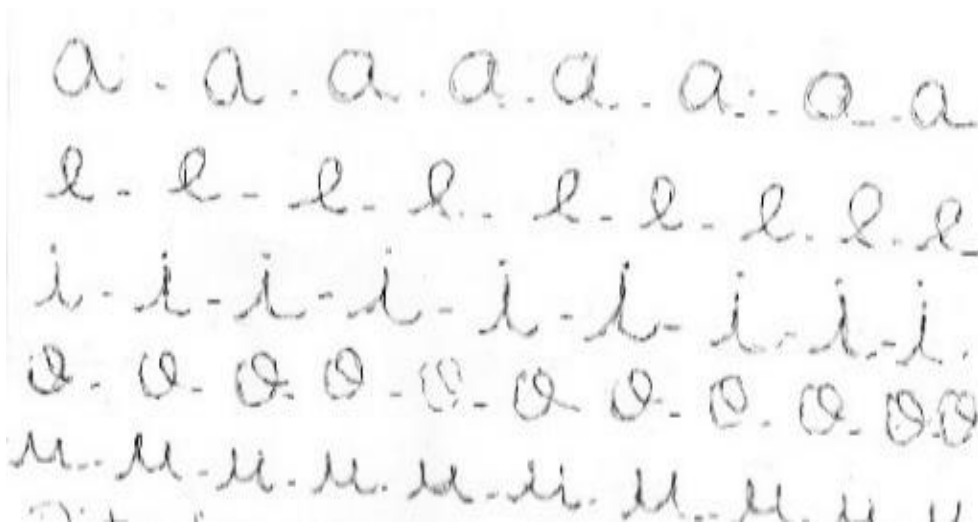 a - a - a - a - a - a - a - a
e - e - e - e - e - e - e - e - e
i - i - i - i - i - i - i - i - i
o - o - o - o - o - o - o - o - o - o - o
u - u - u - u - u - u - u - u - u - u